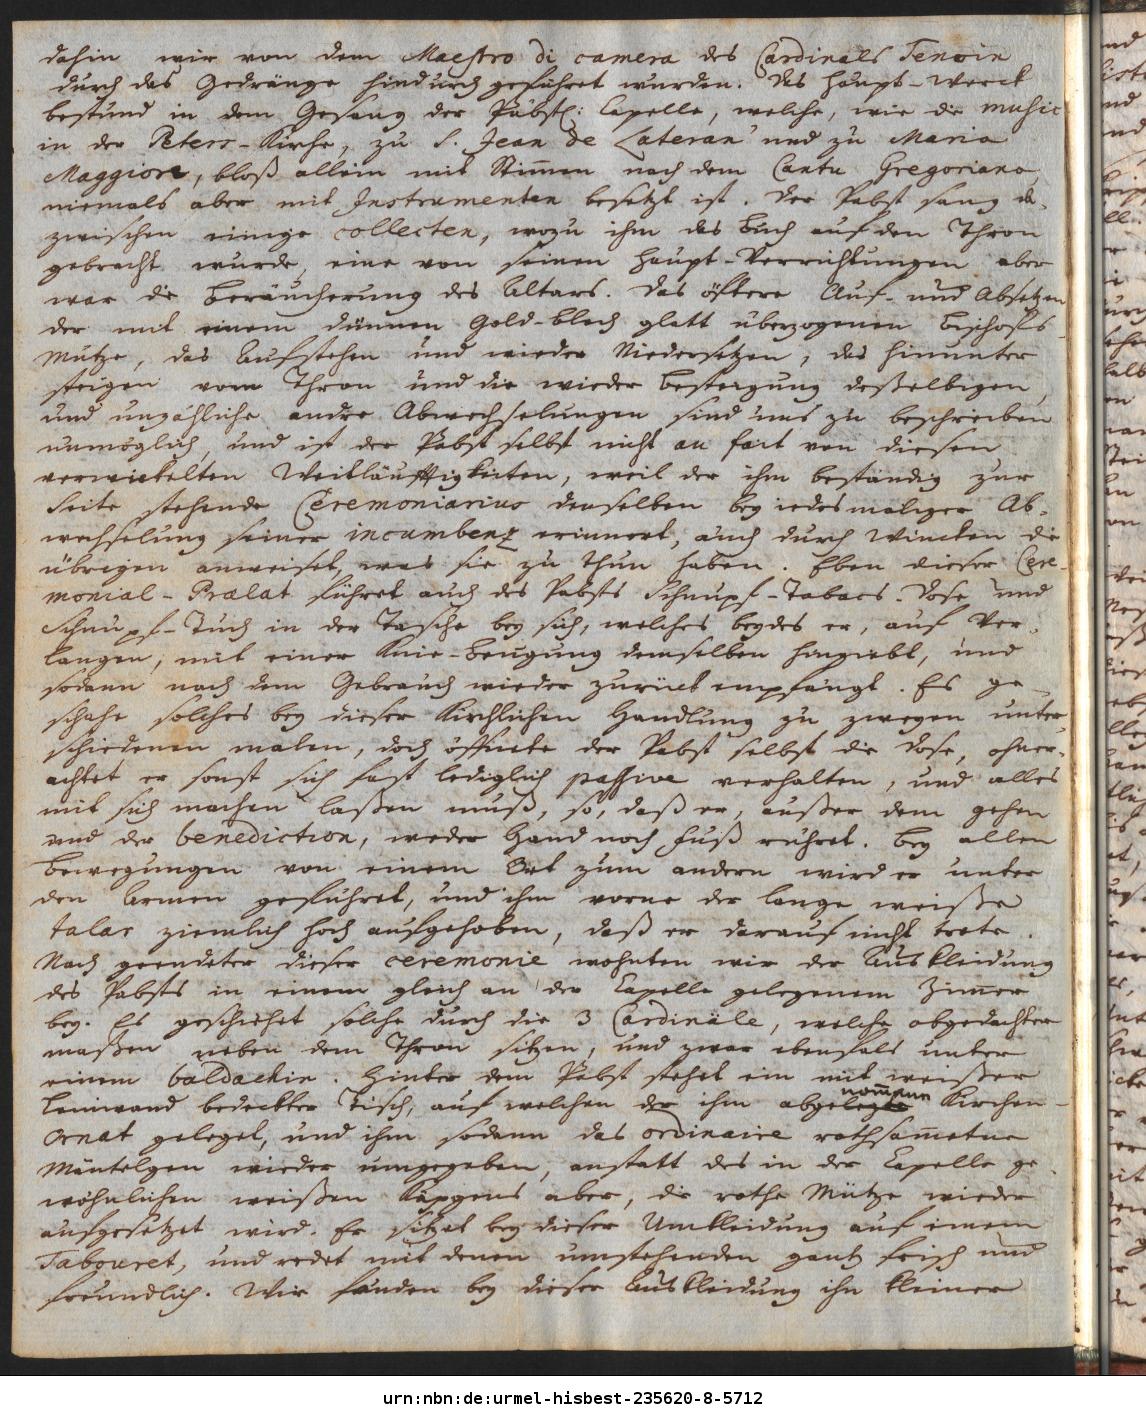 dahin wir von dem Maestro di camera des Cardinals Tencin
durch das Gedränge hindurch geführet wurden. Das Haupt-Werck
bestund in dem Gesang der Päbstl: Capelle, welche, wie die music
in der Peters-Kirche, zu S. Jean de Lateran und zu Maria
Maggiore, bloß allein mit Stim̄en nach dem Cantu Gregoriano,
niemals aber mit Instrumenten besetzt ist. Der Pabst sang da-
zwischen einige collecten, wozu ihm das Buch auf den Thron
gebracht wurde, eine von seinen Haupt-Verrichtungen aber
war die Beräucherung des Altars. Das öftere Auf- und Absetzen
der mit einem dünnen Gold-blech glatt überzogenen Bischoffs-
Mütze, das Aufstehen und wieder Niedersetzen, das hinunter
steigen vom Thron und die wieder Besteigung deßelbigen,
und unzähliche andre Abwechselungen sind uns zu beschreiben
unmöglich, und ist der Pabst selbst nicht au fait von diesen
verwickelten Weitläufftigkeiten, weil der ihm beständig zur
Seite stehende Ceremoniarius denselben bey iedesmaliger Ab-
wechselung seiner incumbenz erinnert, auch durch Wincken die
übrigen anweiset, was sie zu thun haben. Eben dieser Cere-
monial-Prælat führet auch des Pabsts Schnupf-Tabacs-Dose und
Schnupf-Tuch in der Tasche bey sich, welches beydes er, auf Ver-
langen, mit einer Knie-Beugung demselben hingiebt, und
sodann nach dem Gebrauch wieder zurück empfängt. Es ge-
schahe solches bey dieser Kirchlichen Handlung zu zweyen unter
schiedenen malen, doch öffnete der Pabst selbst die Dose, ohner-
achtet er sonst sich fast lediglich passive verhalten, und alles
mit sich machen laßen muß, so, daß er, außer dem gehen
und der benediction, weder Hand noch Fuß rühret. Bey allen
Bewegungen von einem Ort zum andern wird er unter
den Armen geführet, und ihm vorne der lange weiße
talar ziemlich hoch aufgehoben, daß er darauf nicht trete.
Nach geendeter dieser ceremonie wohnten wir der Auskleidung
des Pabsts in einem gleich an der Capelle gelegenem Zim̄er
bey. Es geschiehet solche durch die 3 Cardinäle, welche obgedachter
maßen neben dem Thron sitzen, und zwar ebenfals unter
einem baldachin. Hinter dem Pabst stehet ein mit weißer
Leinwand bedeckter Tisch, auf welchen der ihm abgenom̄ene Kirchen-
Ornat geleget, und ihm sodann das ordinaire rothsam̄etne
Mäntelgen wieder umgegeben, anstatt des in der Capelle ge-
wöhnlichen weißen Käpgens aber, die rothe Mütze wieder
aufgesetzet wird. Er sitzet bey dieser Umkleidung auf einem
Tabouret, und redet mit denen umstehenden gantz frisch und
freundlich. Wir fanden bey dieser Auskleidung ihn kleiner
urn:nbn:de:urmel-hisbest-235620-8-5712